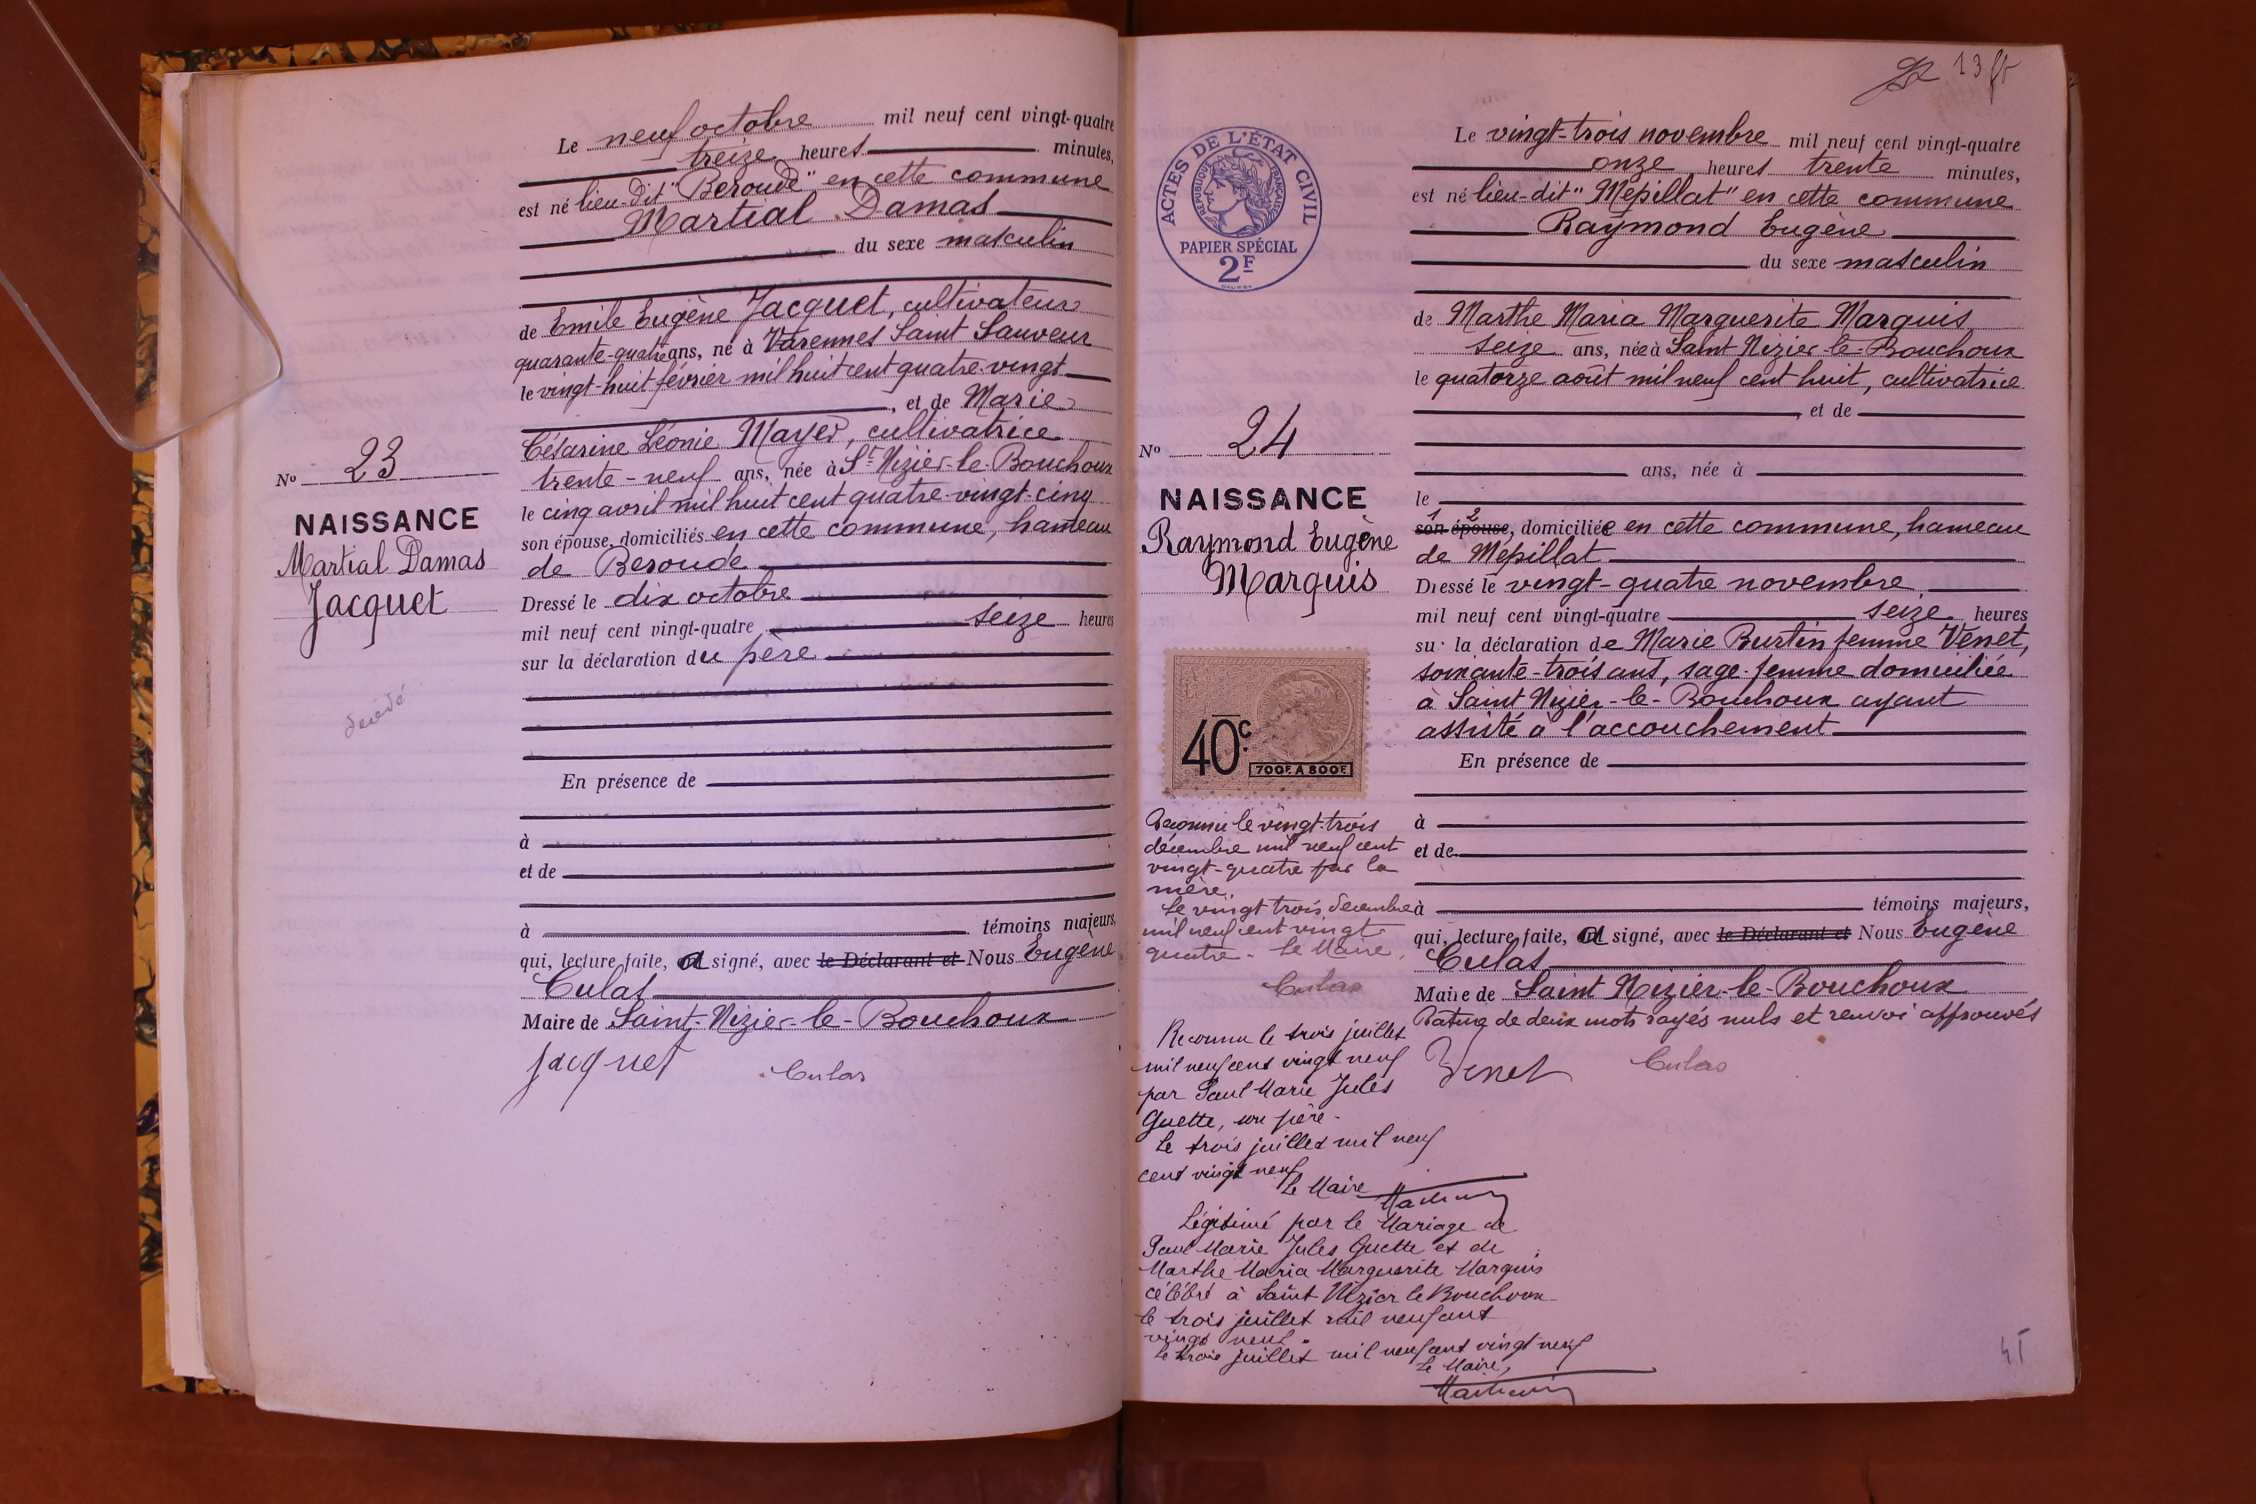 Le neuf octobre mil neuf cent vingt-quatre
treize heures minutes,
est né lieu-dit "Beroude" en cette commune
Martial Damas
du sexe masculin
de Emile Eugène Jacquet, cultivateur
quarante-quatre ans, né à Varennes Saint Sauveur
le vingt-huit février mil huit cent quatre-vingt
, et de Marie
Césarine Léonie Mayer, cultivatrice
trente-neuf ans, née à St Nizier-le-Bouchoux
le cinq avril mil huit cent quatre-vingt-cinq
son épouse, domiciliés en cette commune, hameau
de Beroude
Dressé le dix octobre
mil neuf cent vingt-quatre seize heures
sur la déclaration du père
En présence de
à
et de
à témoins majeurs,
qui, lecture faite, a signé, avec le Déclarant et Nous Eugène
Culas
Maire de Saint-Nizier-le-Bouchoux
Jacquet Culas
No 23
NAISSANCE
Martial Damas
Jacquet
décédé
13
Le vingt-trois novembre mil neuf cent vingt-quatre
onze heures trente minutes,
est né lieu-dit "Mépillat" en cette commune
Raymond Eugène
du sexe masculin
de Marthe Maria Marguerite Marquis
seize ans, née à Saint Nizier-le-Bouchoux
le quatorze août mil neuf cent huit, cultivatrice
, et de
ans, née à
le
1 2
son épouse, domiciliée en cette commune, hameau
de Mépillat
Dressé le vingt-quatre novembre
mil neuf cent vingt-quatre seize heures
sur la déclaration de Marie Burtin femme Venet,
soixante-trois ans, sage-femme domiciliée
à Saint Nizier-le-Bouchoux ayant
assisté à l'accouchement
En présence de
à
et de
à témoins majeurs,
qui, lecture faite, a signé, avec le Déclarant et Nous Eugène
Culas
Maire de Saint Nizier-le-Bouchoux
Rature de deux mots rayés nuls et renvoi approuvés
Venet Culas
ACTES DE L'ÉTAT CIVIL
RÉPUBLIQUE FRANÇAISE
PAPIER SPÉCIAL
2F
No 24
NAISSANCE
Raymond Eugène
Marquis
40c.
700F. A 800F.
Reconnu le vingt-trois
décembre mil neuf cent
vingt-quatre par la
mère.
Le vingt trois decembre
mil neuf cent vingt
quatre - Le Maire,
Culas
Reconnu le trois juillet
mil neuf cent vingt neuf
par Paul Marie Jules
Guette, son père -
Le trois juillet mil neuf
cent vingt neuf
Le Maire
Légitimé par le Mariage de
Paul Marie Jules Guette et de
Marthe Maria Marguerite Marquis
célébré à Saint Nizier le Bouchoux
le trois juillet mil neuf cent
vingt neuf.
Le trois juillet mil neuf cent vingt neuf
Le Maire,